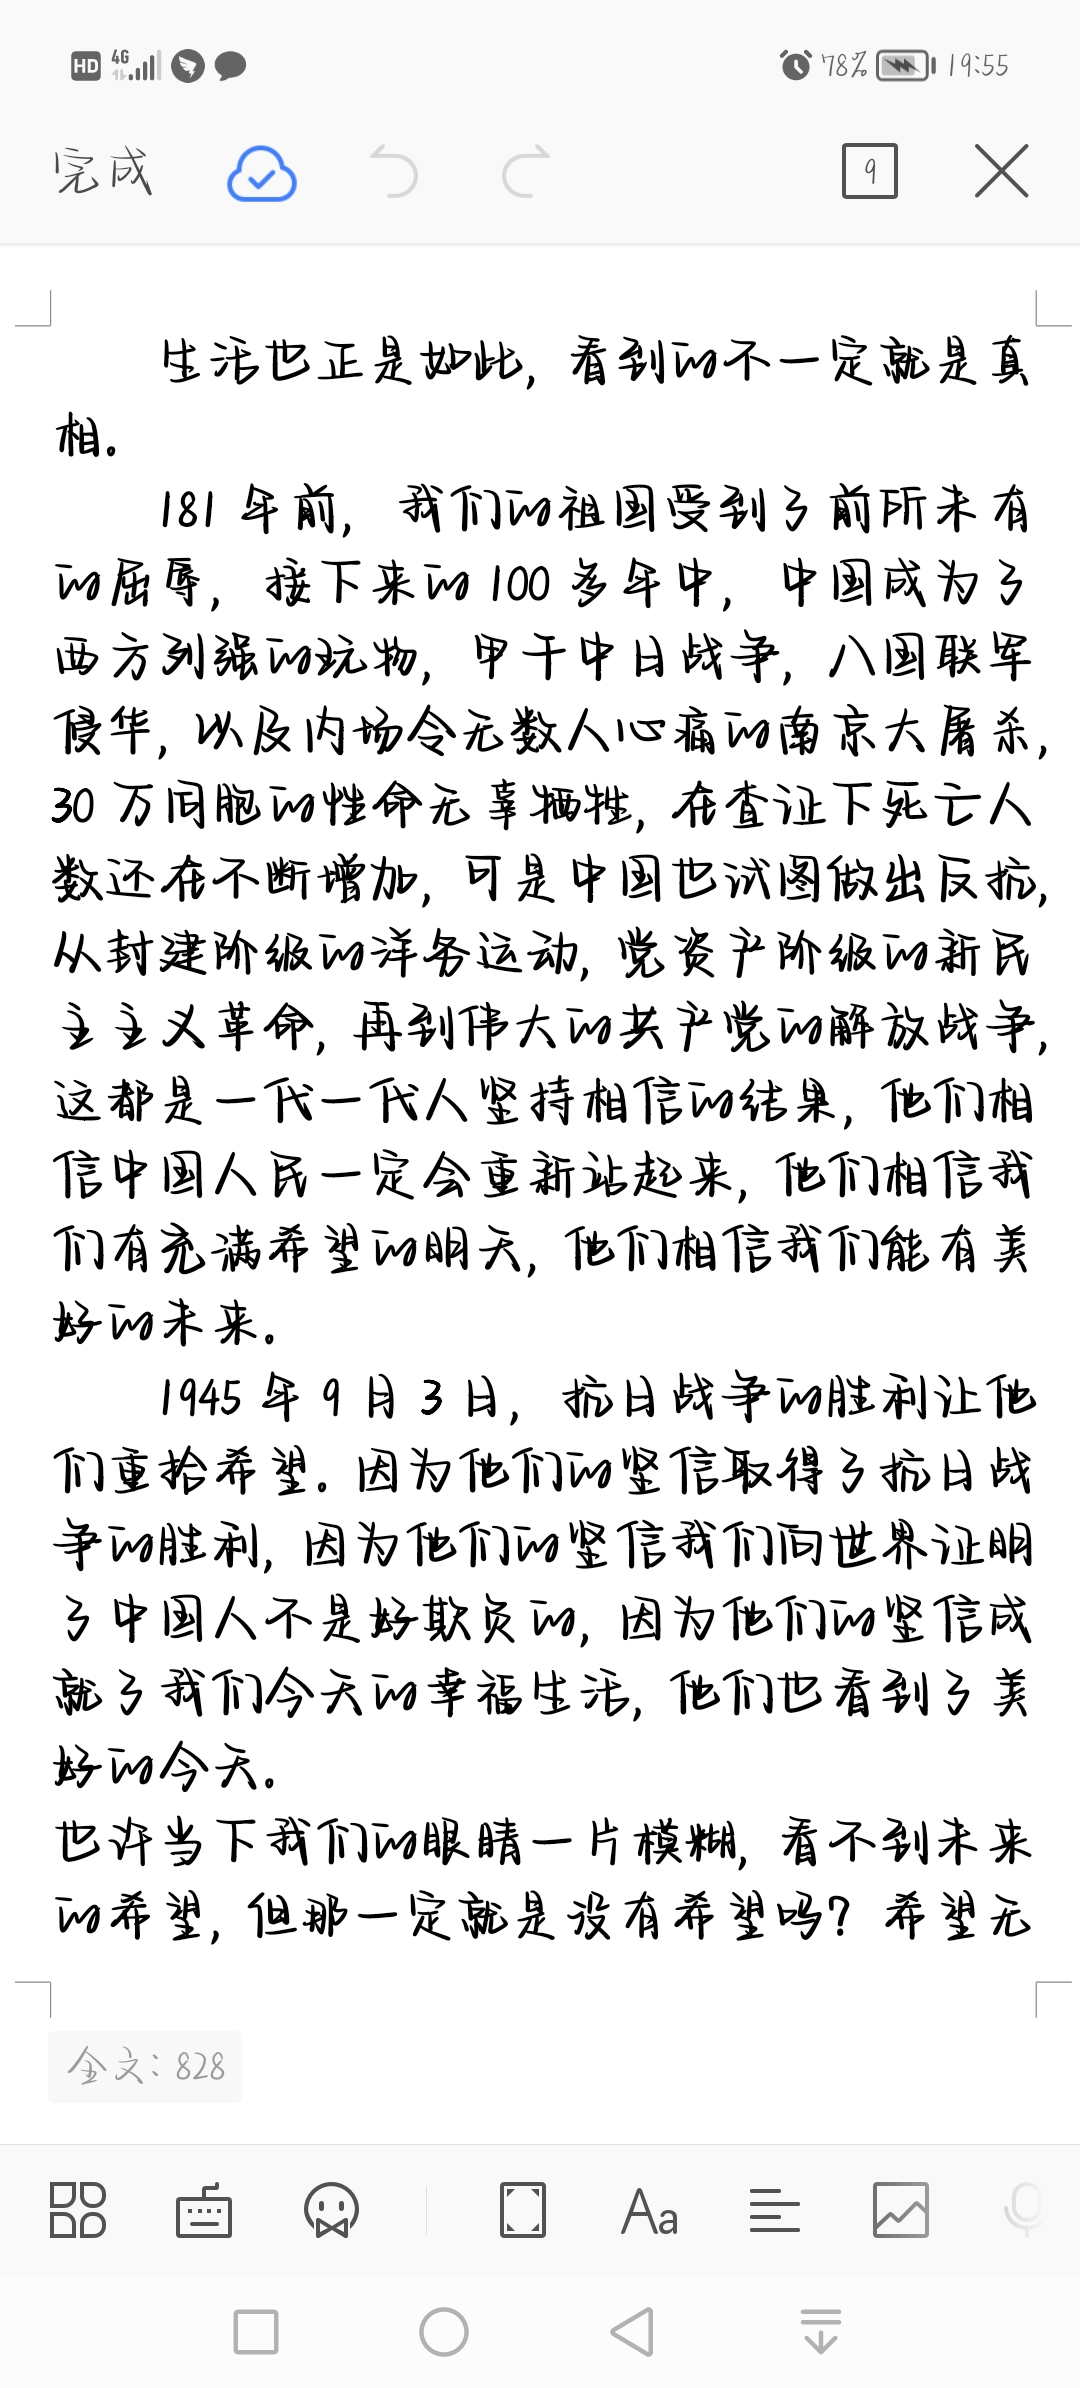 HD 4G 78% 19:55
完成 9
生活也正是如此，看到的不一定就是真
相。
181 年前，我们的祖国受到了前所未有
的屈辱，接下来的 100 多年中，中国成为了
西方列强的玩物，甲午中日战争，八国联军
侵华，以及内场令无数人心痛的南京大屠杀，
30 万同胞的性命无辜牺牲，在查证下死亡人
数还在不断增加，可是中国也试图做出反抗，
从封建阶级的洋务运动，党资产阶级的新民
主主义革命，再到伟大的共产党的解放战争，
这都是一代一代人坚持相信的结果，他们相
信中国人民一定会重新站起来，他们相信我
们有充满希望的明天，他们相信我们能有美
好的未来。
1945 年 9 月 3 日，抗日战争的胜利让他
们重拾希望。因为他们的坚信取得了抗日战
争的胜利，因为他们的坚信我们向世界证明
了中国人不是好欺负的，因为他们的坚信成
就了我们今天的幸福生活，他们也看到了美
好的今天。
也许当下我们的眼睛一片模糊，看不到未来
的希望，但那一定就是没有希望吗？希望无
全文：828
Aa